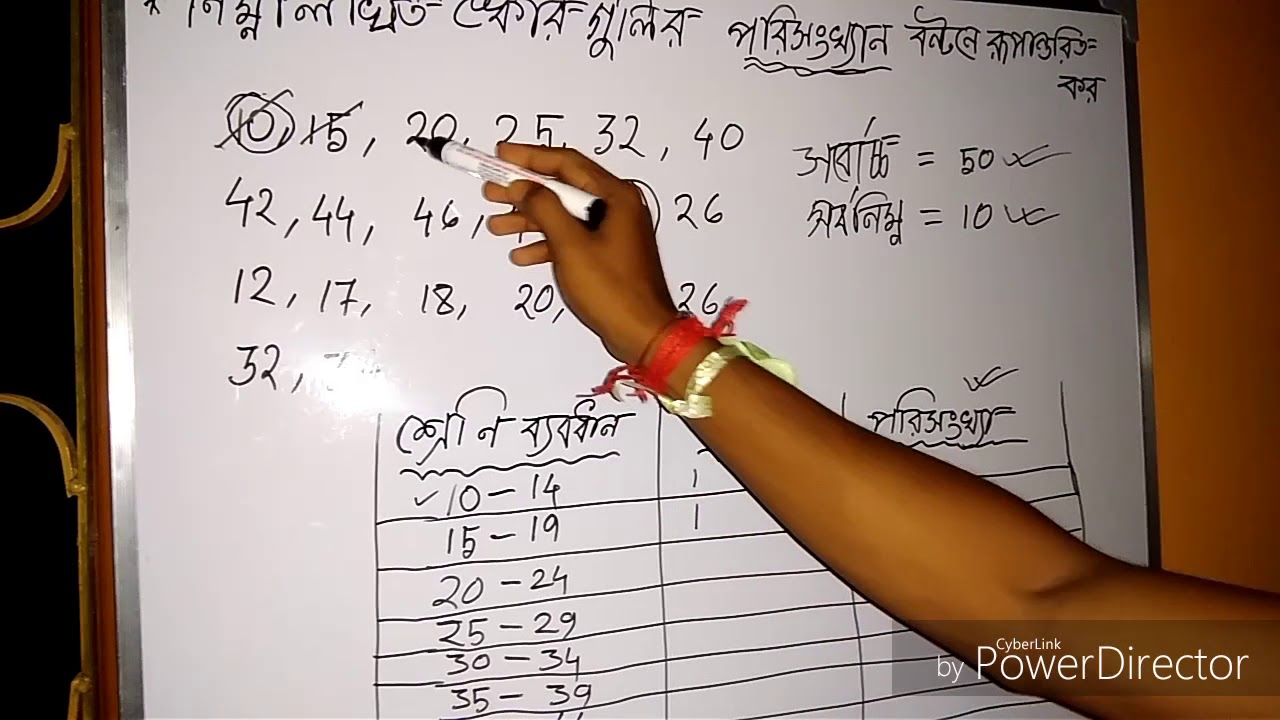 * নিম্নলিখিত স্কোরগুলির পরিসংখ্যান বন্টনে রূপান্তরিত
কর
10, 15, 20, 25, 32, 40
সর্বোচ্চ = 50
42, 44, 46, 26
সর্বনিম্ন = 10
12, 17, 18, 20, 26
32,
শ্রেণি ব্যবধান পরিসংখ্যা
10 - 14 |
15 - 19 |
20 - 24
25 - 29
30 - 34
35 - 39
CyberLink
by PowerDirector